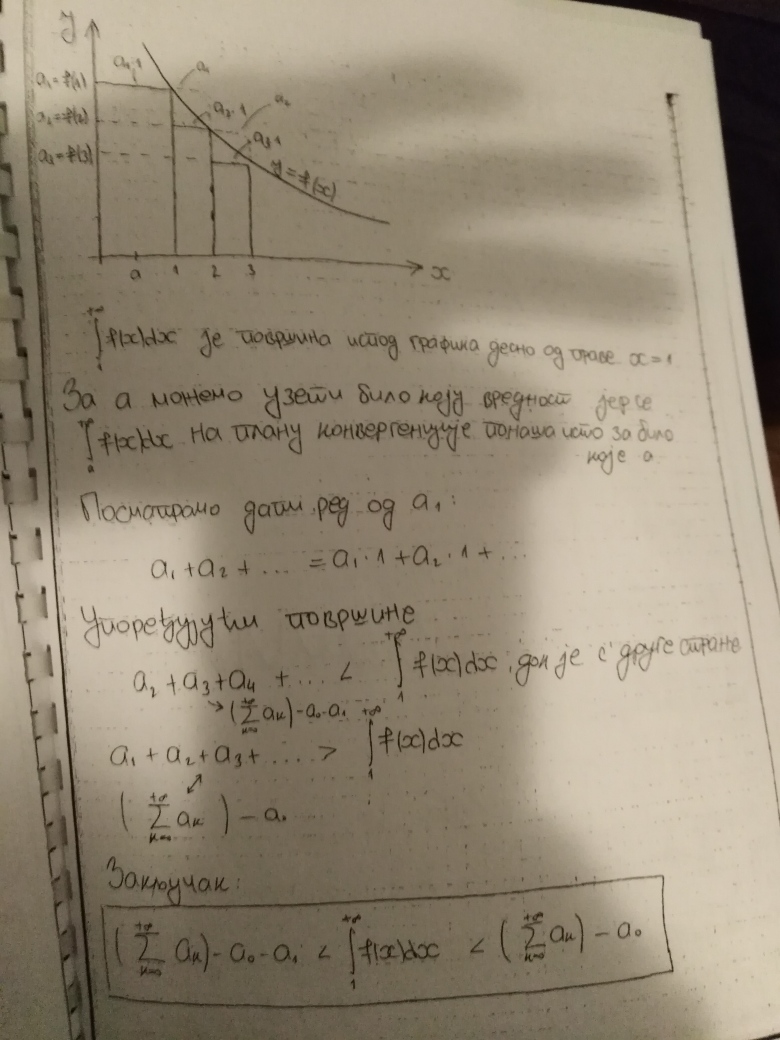 y
a₁·1
a₁
a₁=f(1)
a₂·1
a₂
a₂=f(2)
a₃·1
a₃=f(3)
y=f(x)
a 1 2 3 x
∫₁^{+∞} f(x)dx је површина испод графика десно од праве x=1
За a можемо узети било коју вредност јер се
∫ₐ^{+∞} f(x)dx на плану конвергенције понаша исто за било
које a
Посматрамо дати ред од a₁:
a₁+a₂+... = a₁·1+a₂·1+...
Упоређујући површине
a₂+a₃+a₄+... < ∫₁^{+∞} f(x)dx, док је с друге стране
→(∑_{k=0}^{+∞} aₖ)-a₀-a₁
a₁+a₂+a₃+.... > ∫₁^{+∞} f(x)dx
(∑_{k=0}^{+∞} aₖ) - a₀
Закључак:
(∑_{k=0}^{+∞} aₖ)-a₀-a₁ < ∫₁^{+∞} f(x)dx < (∑_{k=0}^{+∞} aₖ)-a₀